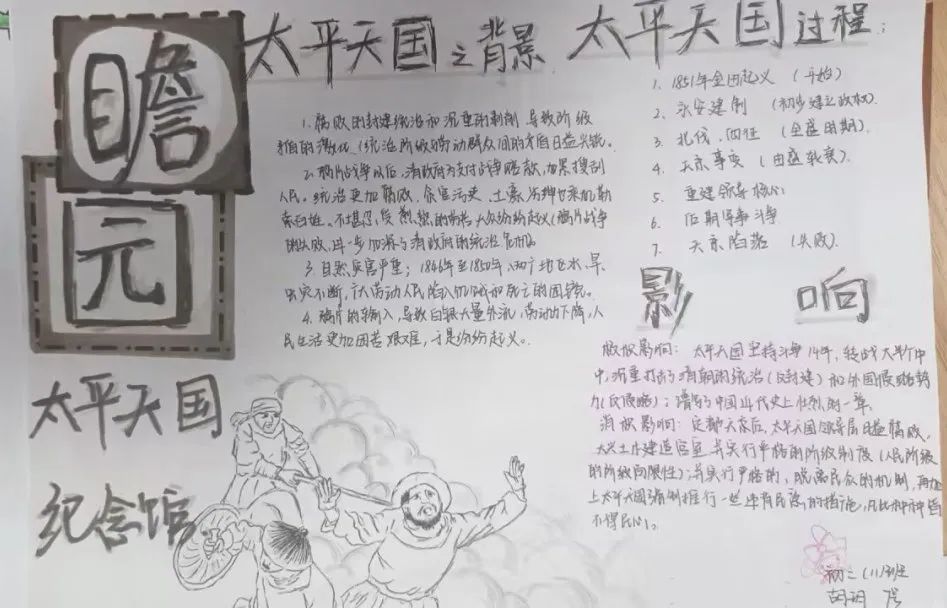 瞻
元
太平天国
纪念馆
太平天国之背景
1. 腐败的封建统治和沉重的剥削,导致阶级
矛盾的激化(统治阶级与劳动群众间的矛盾日益尖锐。
2. 鸦片战争以后,清政府为支付战争赔款,加紧搜刮
人民。统治更加腐败,贪官污吏、土豪劣绅也乘机勒
索百姓。不堪忍受 的劳苦大众纷纷起义(鸦片战争
的失败,进一步加深了清政府的统治危机。
3. 自然灾害严重:1846年至1850年,两广地区水、旱、
虫灾不断,广大劳动人民陷入饥饿和死亡的困境。
4. 鸦片的输入,导致白银大量外流,劳动力下降,人
民生活更加困苦艰难,于是纷纷起义。
太平天国过程:
1. 1851年金田起义 (开始)
2. 永安建制 (初步建立政权).
3. 北伐、西征 (全盛时期).
4. 天京事变 (由盛转衰).
5. 重建领导核心
6. 后期军事斗争
7. 天京陷落 (失败).
影响
积极影响:太平天国坚持斗争14年,转战大半个中
中,沉重打击了清朝的统治(反封建)和外国侵略势
力(反侵略);谱写了中国近代史上壮烈的一章。
消极影响:定都天京后,太平天国领导层日益腐败,
大兴土木建造宫室,并实行严格的阶级制度(人民阶级
的阶级局限性);并实行严格的,脱离民众的机制,再加
上太平天国强制推行一些违背民意的措施,凡此种种皆
不得民心。
初二(11)班
胡